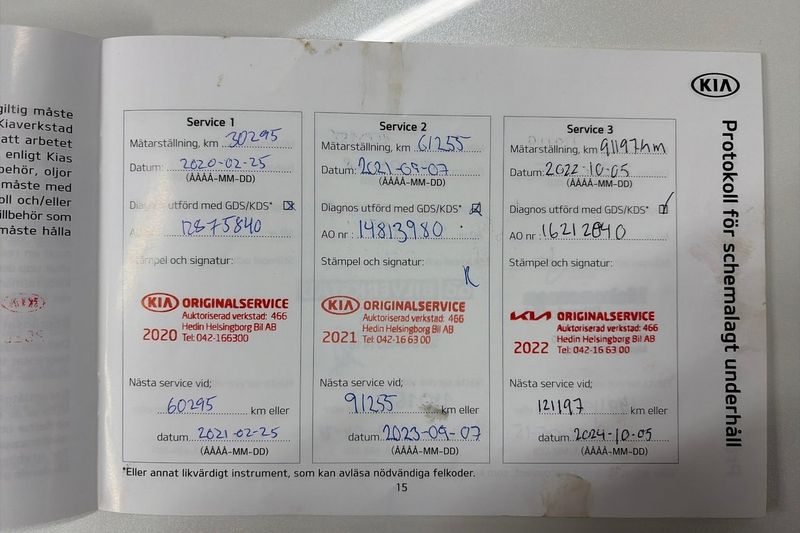 giltig måste
Kiaverkstad
att arbetet
enligt Kias
behör, oljor
måste med
oll och/eller
illbehör som
måste hålla
KIA
Protokoll för schemalagt underhåll
Service 1
Mätarställning, km 30295
Datum: 2020-02-25
(ÅÅÅÅ-MM-DD)
Diagnos utförd med GDS/KDS*
AO nr: 12875840
Stämpel och signatur:
KIA ORIGINALSERVICE
Auktoriserad verkstad: 466
Hedin Helsingborg Bil AB
2020 Tel: 042-166300
Nästa service vid;
60295 km eller
datum 2021-02-25
(ÅÅÅÅ-MM-DD)
Service 2
Mätarställning, km 61255
Datum: 2021-09-07
(ÅÅÅÅ-MM-DD)
Diagnos utförd med GDS/KDS*
AO nr : 14813980
Stämpel och signatur:
KIA ORIGINALSERVICE
Auktoriserad verkstad: 466
Hedin Helsingborg Bil AB
2021 Tel: 042-16 63 00
Nästa service vid;
91255 km eller
datum 2023-09-07
(ÅÅÅÅ-MM-DD)
Service 3
Mätarställning, km 91197km
Datum: 2022-10-05
(ÅÅÅÅ-MM-DD)
Diagnos utförd med GDS/KDS*
AO nr : 16212840
Stämpel och signatur:
KIA ORIGINALSERVICE
Auktoriserad verkstad: 466
Hedin Helsingborg Bil AB
2022 Tel: 042-16 63 00
Nästa service vid;
121197 km eller
datum 2024-10-05
(ÅÅÅÅ-MM-DD)
*Eller annat likvärdigt instrument, som kan avläsa nödvändiga felkoder.
15